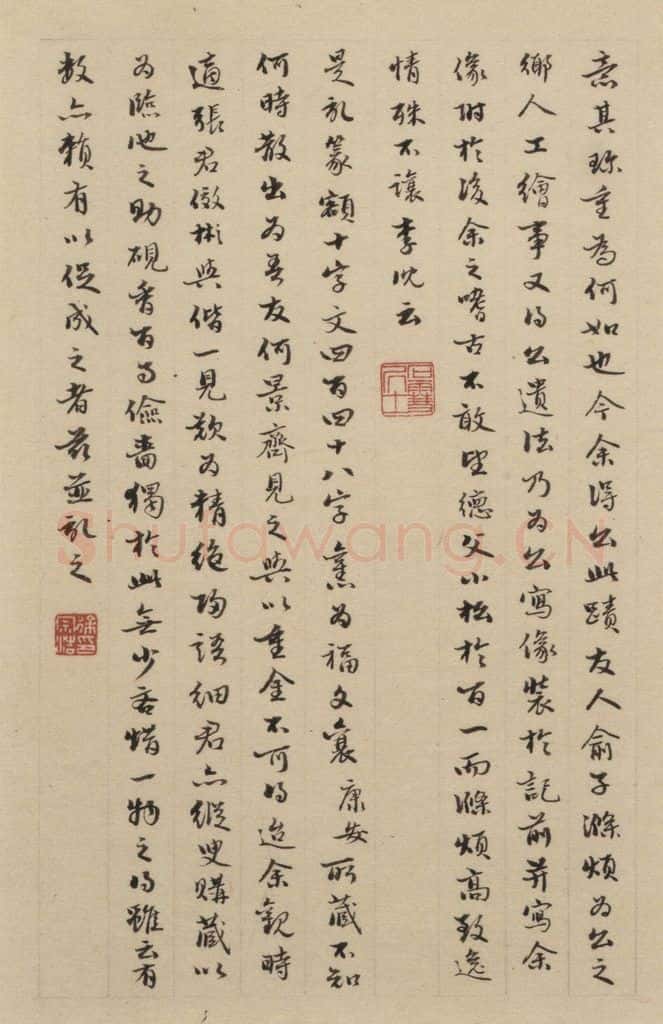 意其珍重為何如也今余得公此蹟友人俞子滌煩為公之
鄉人工繪事又得公遺法乃為公寫像裝於記前并寫余
像附於後余之嗜古不敢望德父小松於百一而滌煩高致逸
情殊不讓李沈云
是記篆額十字文四百四十八字舊為福文襄康安所藏不知
何時散出為吾友何景齊見之與以重金不可得迨余觀時
適張君儆彬與偕一見歎為精絕歸語細君亦縱臾購藏以
為臨池之助硯香百事儉嗇獨於此無少吝惜一物之得雖云有
數亦賴有以促成之者茲並記之
石雪居士
徐宗浩印
Shufawang.CN